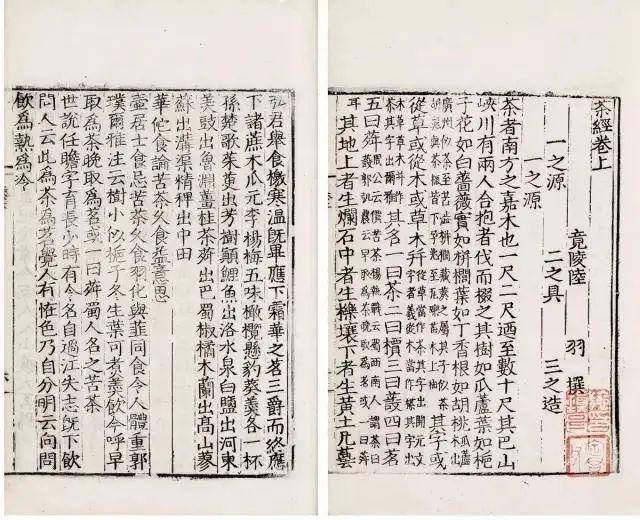 茶經卷上
竟陵陸 羽 撰
一之源 二之具 三之造
一之源
茶者南方之嘉木也一尺二尺迺至數十尺其巴山
峽川有兩人合抱者伐而掇之其樹如瓜蘆葉如梔
子花如白薔薇實如栟櫚葉如丁香根如胡桃瓜蘆木出
廣州似茶至苦澁栟櫚蒲葵之屬其子似茶胡桃與茶根皆下孕兆至瓦礫苗木上抽其字或
從草或從木或草木并從草當作茶其字出開元文字音義從木當作㮒其字出
本草草木并作荼其字出爾雅其名一曰茶二曰檟三曰蔎四曰茗
五曰荈周公云檟苦荼楊執戟云蜀西南人謂茶曰蔎郭弘農云早取為茶晚取為茗或一曰荈
耳其地上者生爛石中者生櫟壤下者生黃土凡藝
弘君舉食檄寒溫旣畢應下霜華之茗三爵而終應
下諸蔗木瓜元李楊梅五味橄欖懸豹葵羮各一杯
孫楚歌茱萸出芳樹顛鯉魚出洛水泉白鹽出河東
美豉出魯淵薑桂茶荈出巴蜀椒橘木蘭出髙山蓼
蘇出溝渠精稗出中田
華佗食論苦茶久食益意思
壷居士食忌苦茶久食羽化與韮同食令人體重郭
璞爾雅注云樹小似梔子冬生葉可煮羮飲今呼早
取爲茶晚取爲茗或一曰荈蜀人名之苦茶
世說任瞻字育長少時有令名自過江失志旣下飲
問人云此爲茶爲茗覺人有恠色乃自分明云向問
飲爲熱爲冷